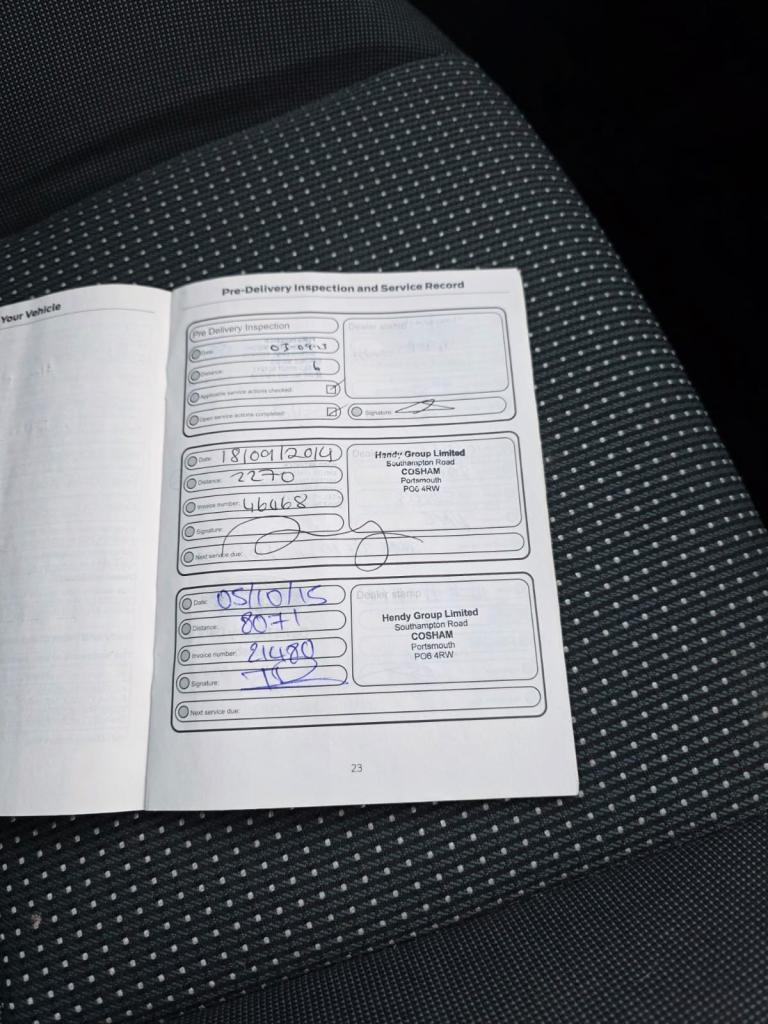 Your Vehicle
Pre-Delivery Inspection and Service Record
Pre Delivery Inspection
Dealer stamp
Date: 03-09-13
Distance: 6
Applicable service actions checked:
Open service actions completed:
Signature:
Date: 18/09/2014
Distance: 2270
Invoice number: 46468
Signature:
Next service due:
Hendy Group Limited
Southampton Road
COSHAM
Portsmouth
PO6 4RW
Date: 05/10/15
Distance: 8071
Invoice number: 21480
Signature:
Next service due:
Dealer stamp
Hendy Group Limited
Southampton Road
COSHAM
Portsmouth
PO6 4RW
23